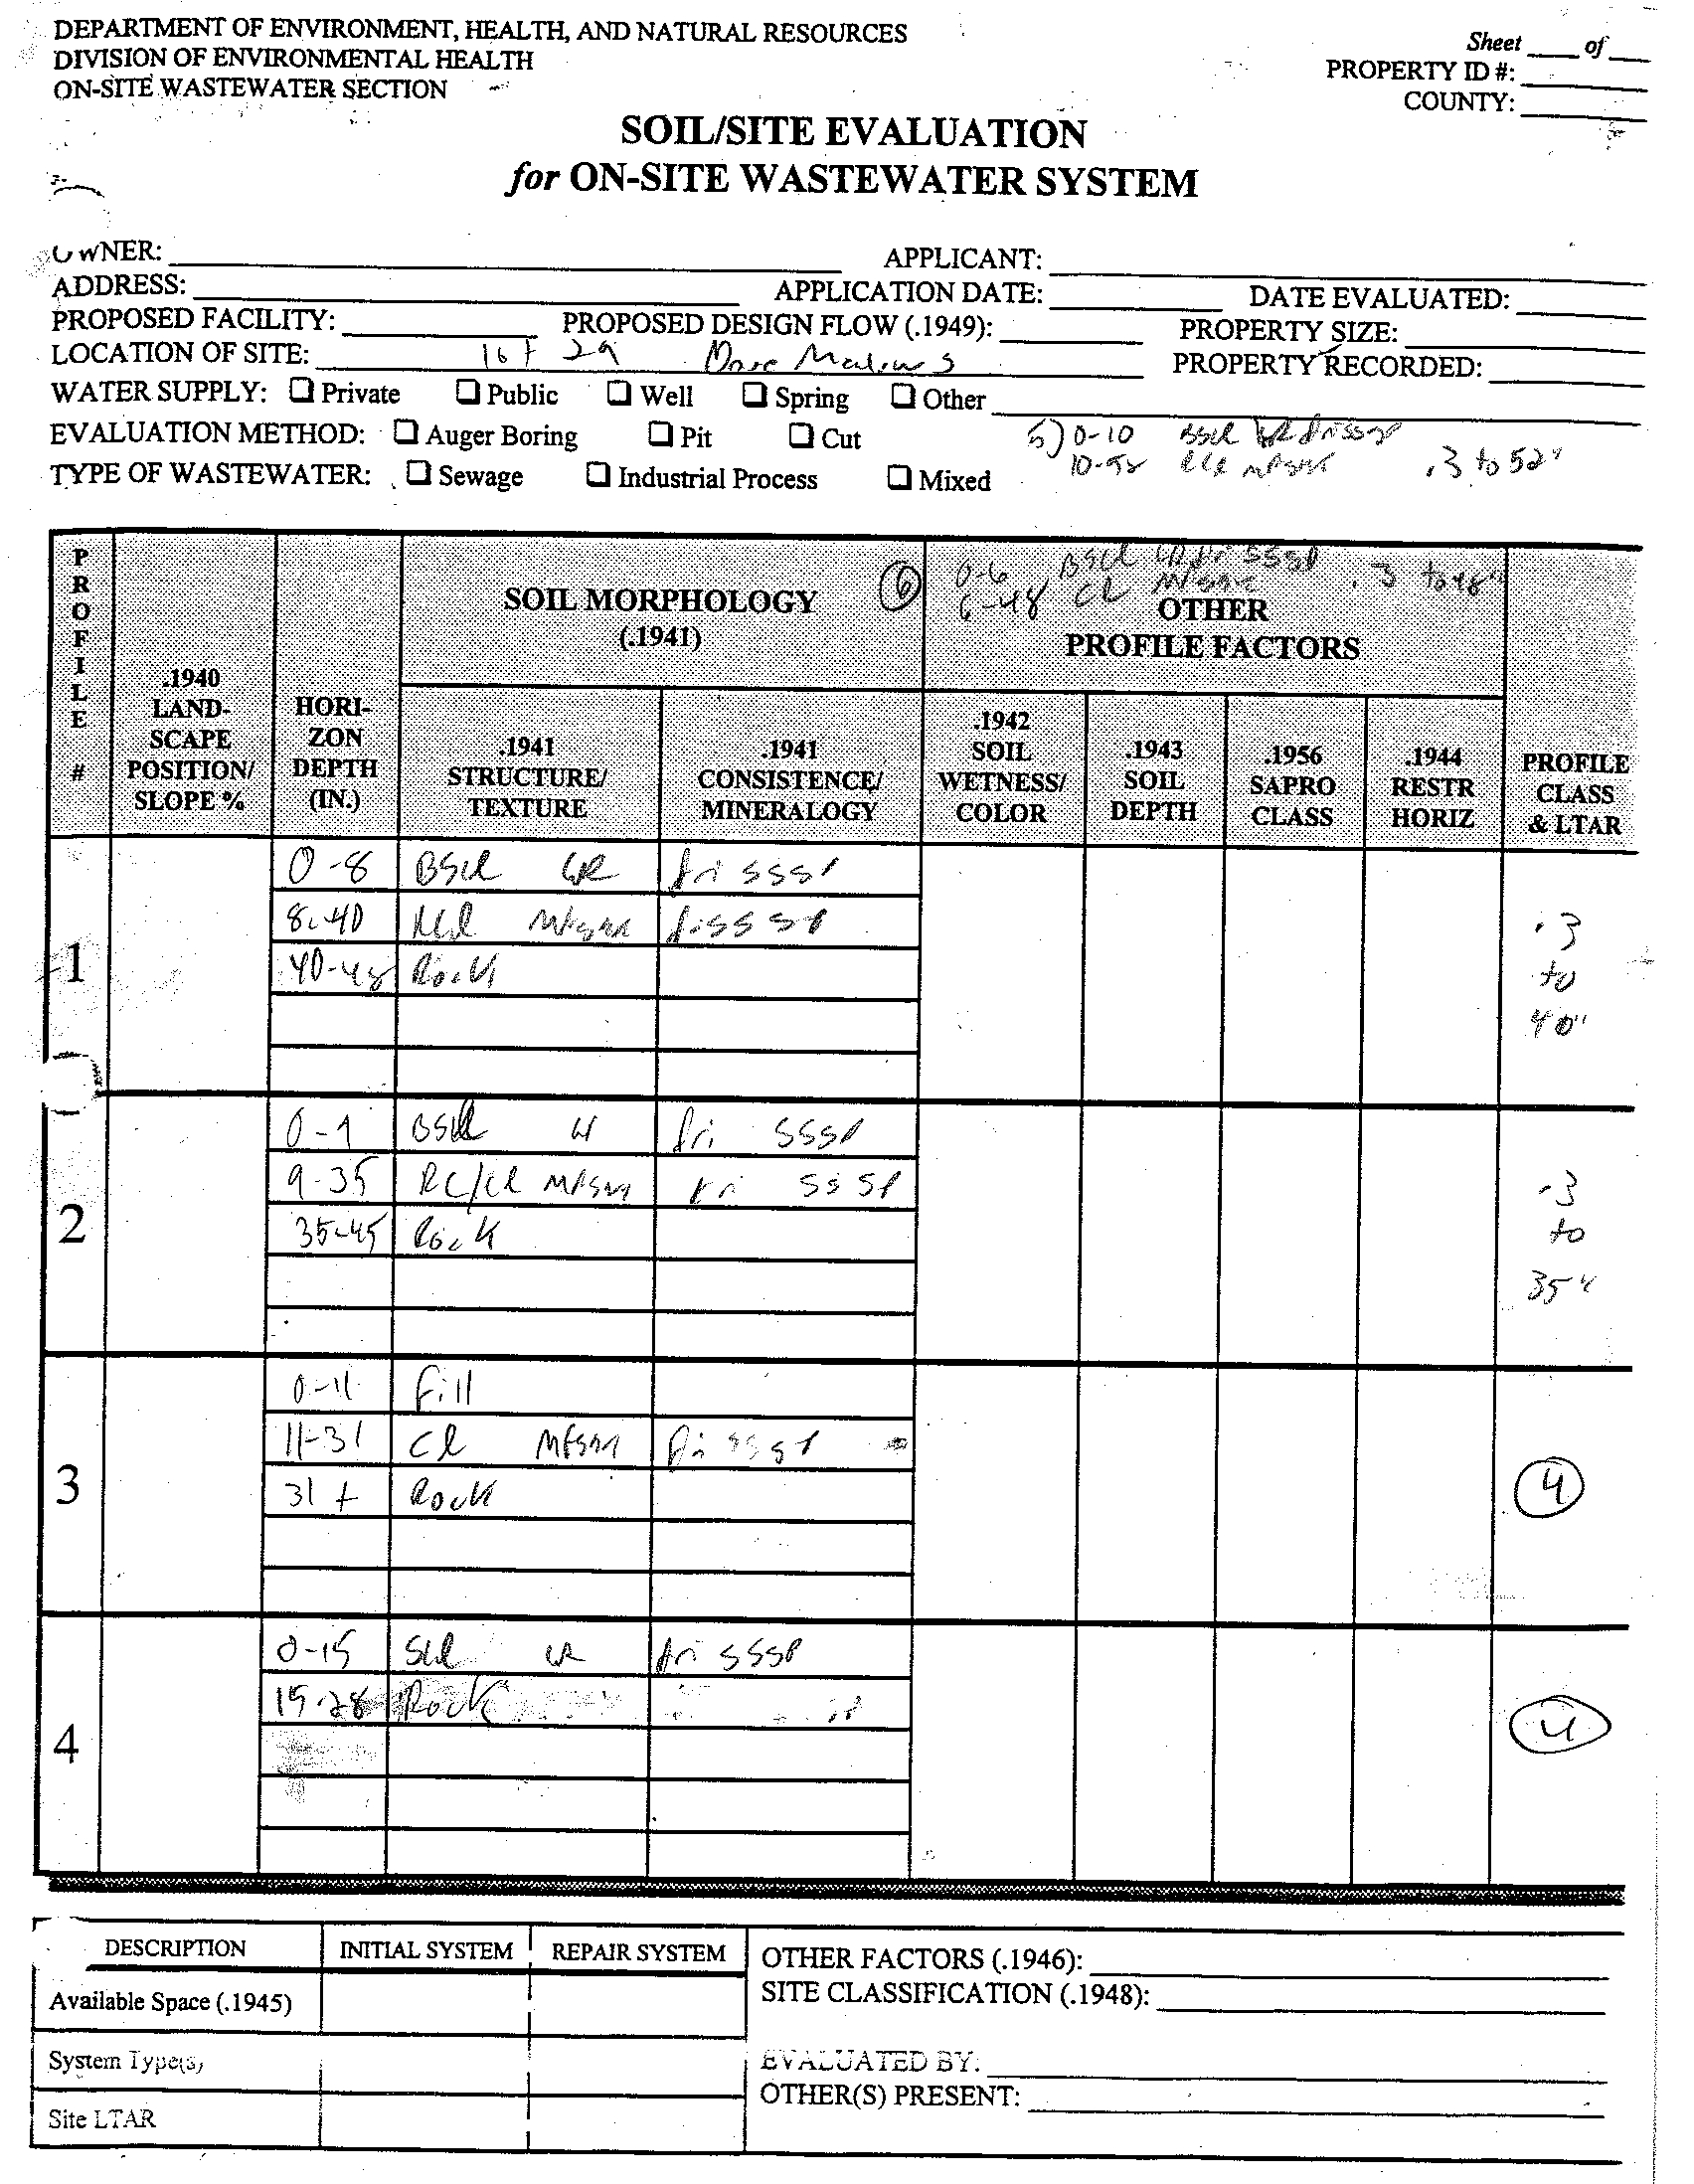 DEPARTMENT OF ENVIRONMENT, HEALTH, AND NATURAL RESOURCES
DIVISION OF ENVIRONMENTAL HEALTH
ON-SITE WASTEWATER SECTION
Sheet ____ of ____
PROPERTY ID #:
COUNTY:
SOIL/SITE EVALUATION
for ON-SITE WASTEWATER SYSTEM
OWNER: APPLICANT:
ADDRESS: APPLICATION DATE: DATE EVALUATED:
PROPOSED FACILITY: PROPOSED DESIGN FLOW (.1949): PROPERTY SIZE:
LOCATION OF SITE: lot 29 PROPERTY RECORDED:
WATER SUPPLY: ☐ Private ☐ Public ☐ Well ☐ Spring ☐ Other
EVALUATION METHOD: ☐ Auger Boring ☐ Pit ☐ Cut
5) 0-10 BSCL GR
TYPE OF WASTEWATER: ☐ Sewage ☐ Industrial Process ☐ Mixed
.3 to 52"
PROFILE #
.1940 LAND-SCAPE POSITION/ SLOPE %
HORI-ZON DEPTH (IN.)
SOIL MORPHOLOGY (.1941)
6
0-6 BSCL GR fri SSSP
6-48 CL .3 to 48"
OTHER PROFILE FACTORS
.1941 STRUCTURE/ TEXTURE
.1941 CONSISTENCE/ MINERALOGY
.1942 SOIL WETNESS/ COLOR
.1943 SOIL DEPTH
.1956 SAPRO CLASS
.1944 RESTR HORIZ
PROFILE CLASS & LTAR
1
0-8 BSCL GR fri SSSP
8-40 fri SSSP
40-48 Rock
.3 to 40"
2
BSCL fri SSSP
9-35 RC/CL fri SSSP
35-45 Rock
.3 to 35"
3
0-11 Fill
11-31 CL fri SSSP
31+ Rock
4
4
0-15 SCL GR fri SSSP
15-28 Rock
4
DESCRIPTION INITIAL SYSTEM REPAIR SYSTEM
Available Space (.1945)
System Type(s)
Site LTAR
OTHER FACTORS (.1946):
SITE CLASSIFICATION (.1948):
EVALUATED BY:
OTHER(S) PRESENT: